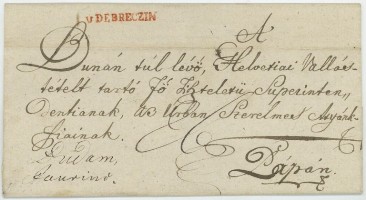 v DEBRECZIN
A
Dunán túl lévő, Helvetiai Vallás-
tételt tartó Fő Tiszteletű Superinten„
Dentianak, az Urban Szerelmes Atyánk-
fiainak.
Budam,
Jaurino.
Pápán.